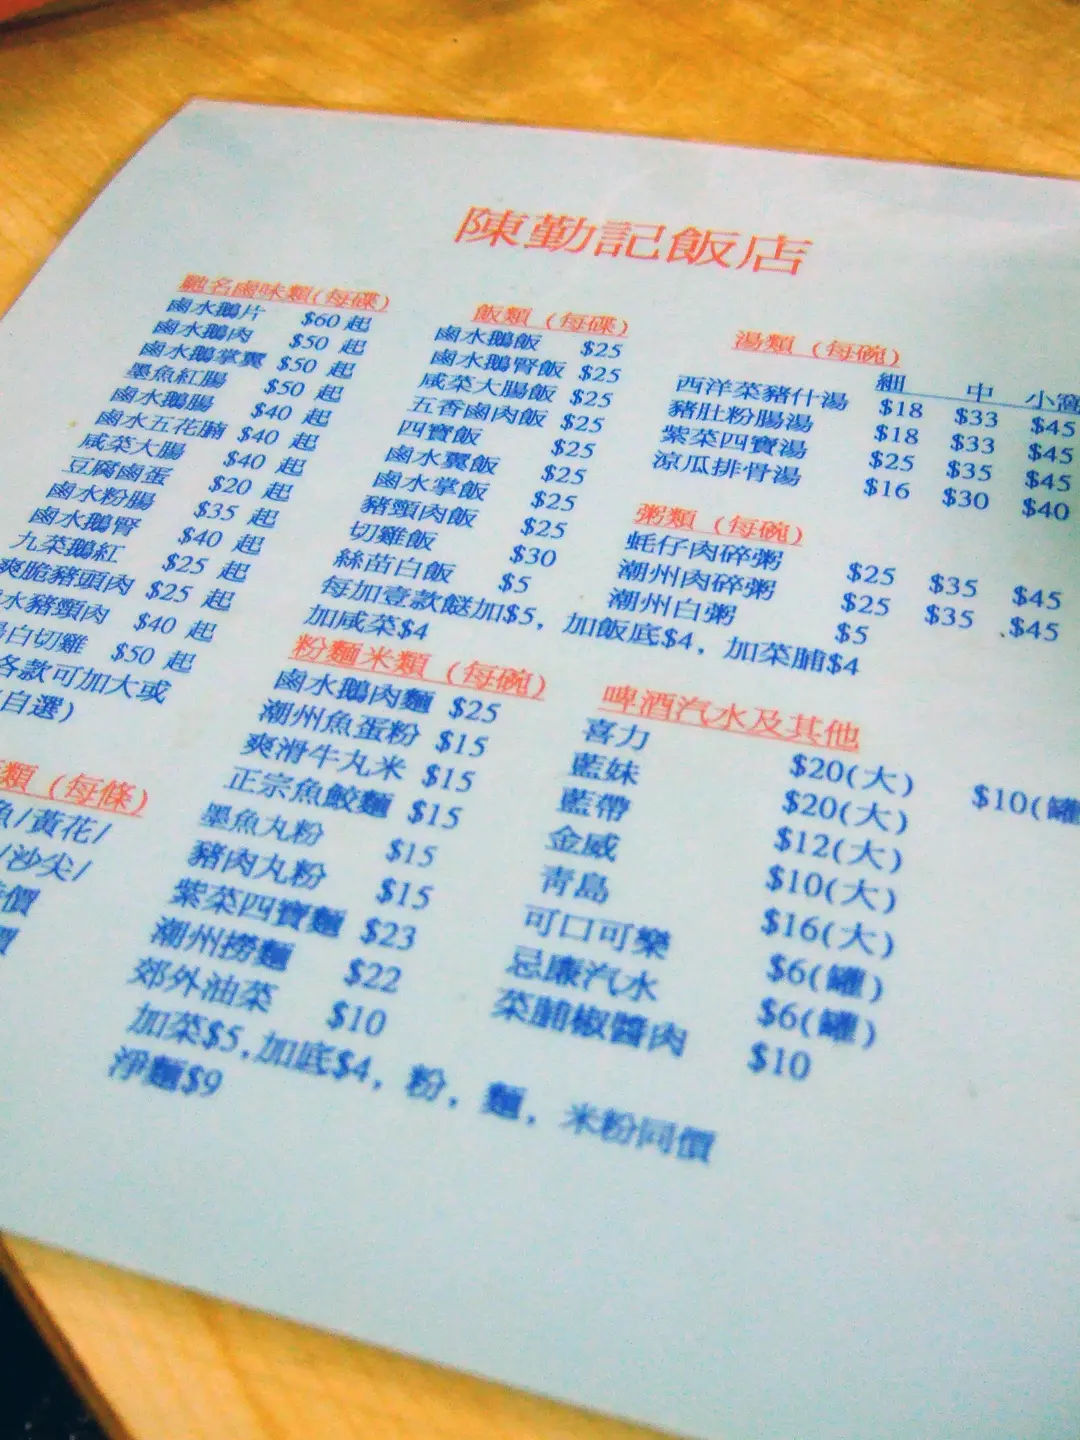 陳勤記飯店
馳名鹵味類(每碟)
鹵水鵝片 $60 起
鹵水鵝肉 $50 起
鹵水鵝掌翼 $50 起
墨魚紅腸 $50 起
鹵水鵝腸 $40 起
鹵水五花腩 $40 起
咸菜大腸 $40 起
豆腐鹵蛋 $20 起
鹵水粉腸 $35 起
鹵水鵝腎 $40 起
九菜鵝紅 $25 起
爽脆豬頭肉 $25 起
水豬頸肉 $40 起
白切雞 $50 起
各款可加大或
自選)
類 (每條)
魚/黃花/
/沙尖/
價
飯類 (每碟)
鹵水鵝飯 $25
鹵水鵝腎飯 $25
咸菜大腸飯 $25
五香鹵肉飯 $25
四寶飯 $25
鹵水翼飯 $25
鹵水掌飯 $25
豬頸肉飯 $25
切雞飯 $30
絲苗白飯 $5
每加壹款餸加$5, 加飯底$4, 加菜脯$4
加咸菜$4
粉麵米類 (每碗)
鹵水鵝肉麵 $25
潮州魚蛋粉 $15
爽滑牛丸米 $15
正宗魚餃麵 $15
墨魚丸粉 $15
豬肉丸粉 $15
紫菜四寶麵 $23
潮州撈麵 $22
郊外油菜 $10
加菜$5,加底$4, 粉, 麵, 米粉同價
淨麵$9
湯類 (每碗)
細 中 小窩
西洋菜豬什湯 $18 $33 $45
豬肚粉腸湯 $18 $33 $45
紫菜四寶湯 $25 $35 $45
涼瓜排骨湯 $16 $30 $40
粥類 (每碗)
蚝仔肉碎粥 $25 $35 $45
潮州肉碎粥 $25 $35 $45
潮州白粥 $5
啤酒汽水及其他
喜力 $20(大) $10(罐
藍妹 $20(大)
藍帶 $12(大)
金威 $10(大)
青島 $16(大)
可口可樂 $6(罐)
忌廉汽水 $6(罐)
菜脯椒醬肉 $10